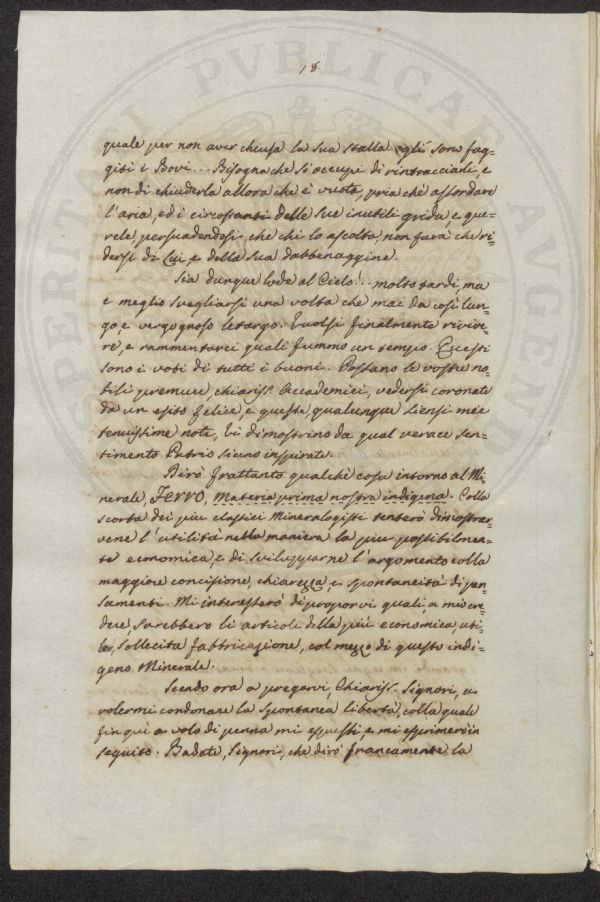 18
quale per non aver chiusa la sua stalla gli sono fug=
giti i Bovi... Bisogna che si occupi di rintracciarli, e
non di chiuderla allora che è vuota, pria che assordare
l'aria, ed i circostanti delle sue inutili grida, e que=
rele, persuadendosi, che chi lo ascolta, non farà che ri=
dersi di Lui, e della sua dabbenaggine.
Sia dunque lode al Cielo!... molto tardi, ma
e meglio svegliarsi una volta che mai da così lun=
go, e vergognoso letargo. Vuolsi finalmente rivive=
re, e rammentarci quali fummo un tempo. Questi
sono i voti di tutti i buoni. Possano le vostre no=
bili premure, chiariss. Accademici, vedersi coronate
da un esito felice, e queste, qualunque siensi mie
tenuissime note, Vi dimostrino da qual verace sen=
timento Patrio siano inspirate.
Dirò frattanto qualche cosa intorno al Mi=
nerale, FERRO, Materia prima nostra indigena. Colla
scorta dei piu classici Mineralogisti tenterò dimostrar=
vene l'utilità nella maniera la piu possibilmen=
te economica, e di svilupparne l'argomento colla
maggiore concisione, chiarezza, e spontaneità di pen=
samenti. Mi interesserò di proporvi quali, a mio cre=
dere, sarebbero li articoli della più economica, uti=
le, sollecita fabbricazione, col mezzo di questo indi=
geno Minerale.
Scendo ora a pregarvi, Chiariss. Signori, a
volermi condonare la spontanea libertà, colla quale
fin qui a volo di penna mi espressi, e mi esprimerò in
seguito. Badate, Signori, che dirò francamente la